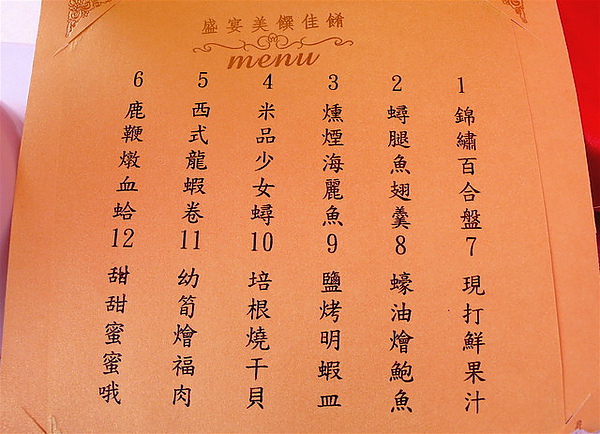 盛宴美饌佳餚
menu
1
錦繡百合盤
2
蟳腿魚翅羹
3
燻煙海麗魚
4
米品少女蟳
5
西式龍蝦卷
6
鹿鞭燉血蛤
7
現打鮮果汁
8
蠔油燴鮑魚
9
鹽烤明蝦皿
10
培根燒干貝
11
幼筍燴福肉
12
甜甜蜜蜜哦